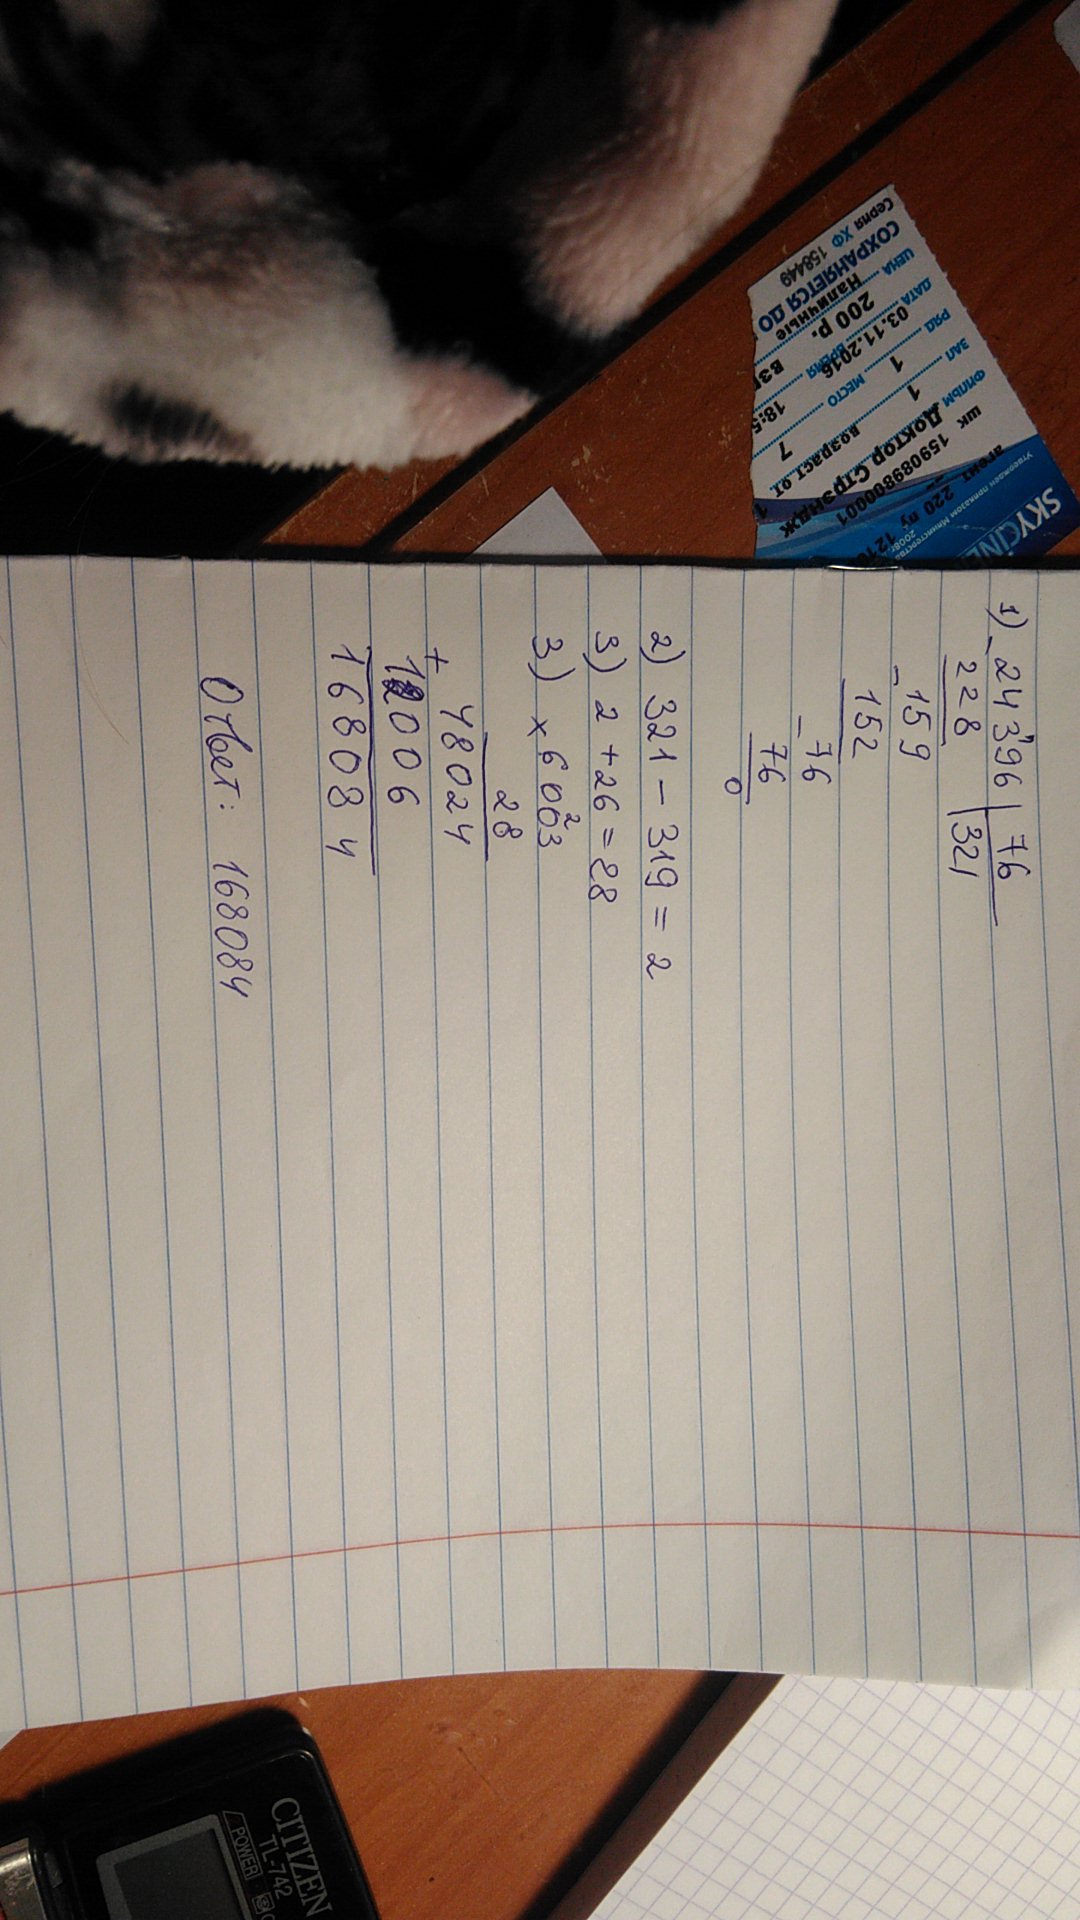 1) 24396 | 76
228 | 321
- 159
152
- 76
76
0
2) 321 - 319 = 2
3) 2 + 26 = 28
3) × 6003
28
+ 48024
12006
168084
Ответ: 168084
SKY
Утвержден приказом
агент 220 пу
шк 1590898000001
ФИЛЬМ Доктор Стрэндж
ЗАЛ 1 возраст от
РЯД 1 МЕСТО 7
ДАТА 03.11.2016 ВРЕМЯ 18:5
ЦЕНА 200 р. ВЗ
Наличные
СОХРАНЯЕТСЯ ДО
Серия ХФ 158449
CITIZEN
TL-742
POWER